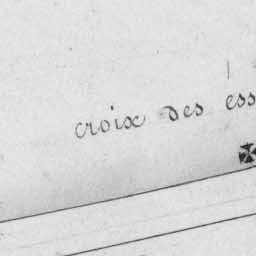 croix des ess